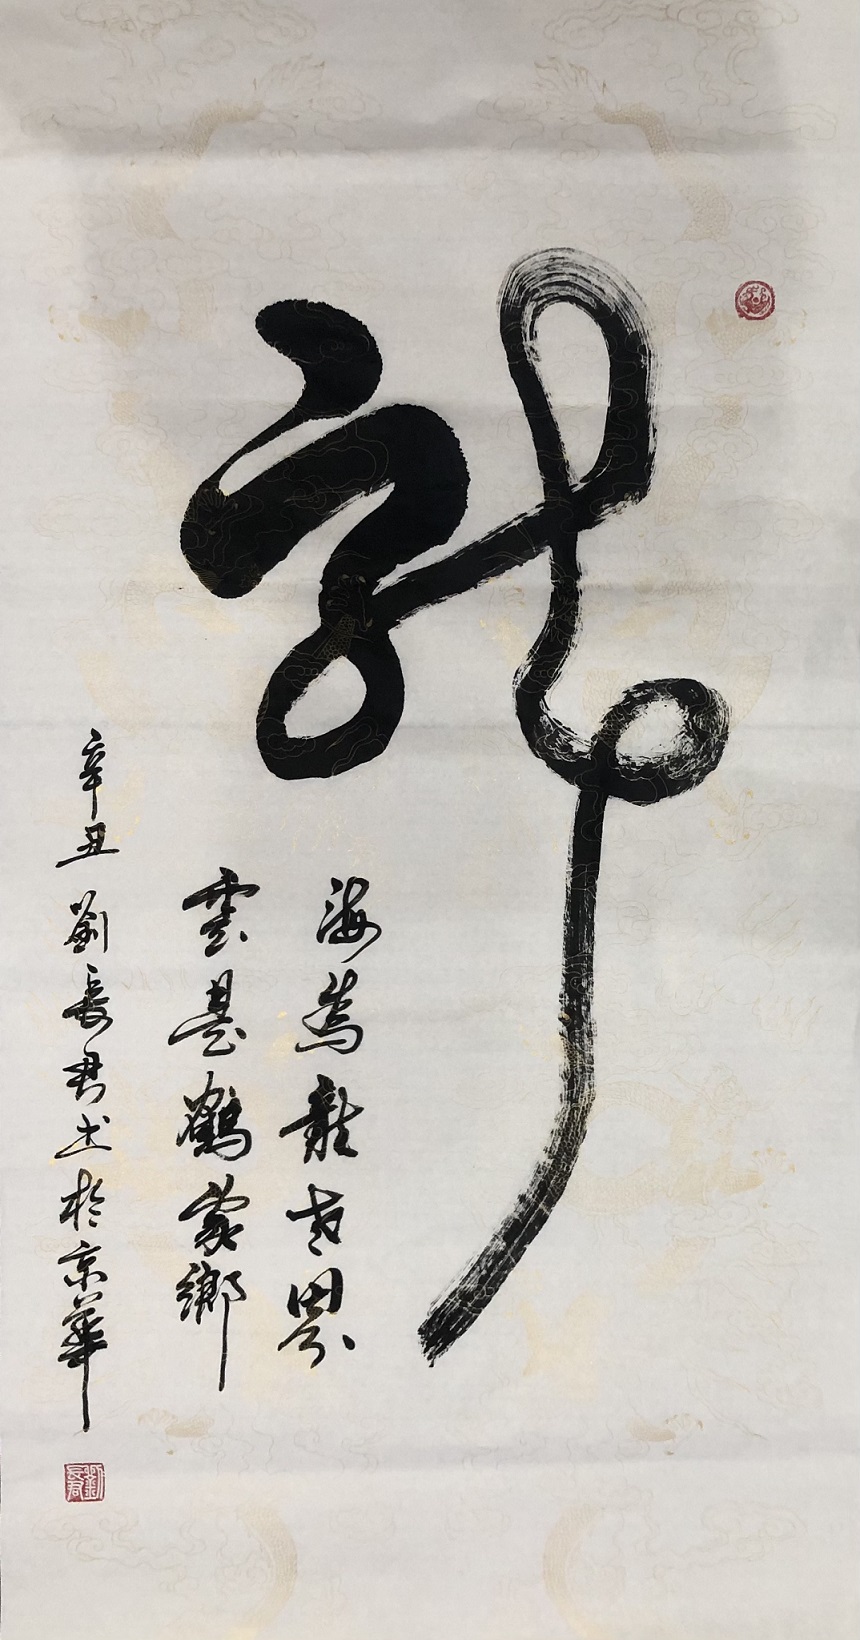 龍
海為龍世界
雲是鶴家鄉
辛丑 劉長君書於京華
劉長君